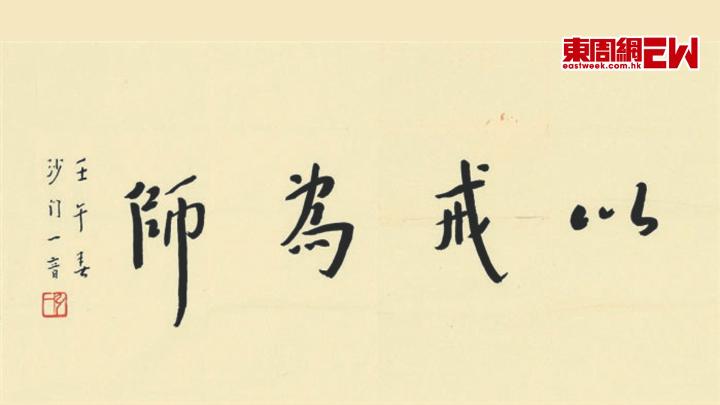 東周網EW
eastweek.com.hk
以戒為師
壬午春
沙門一音